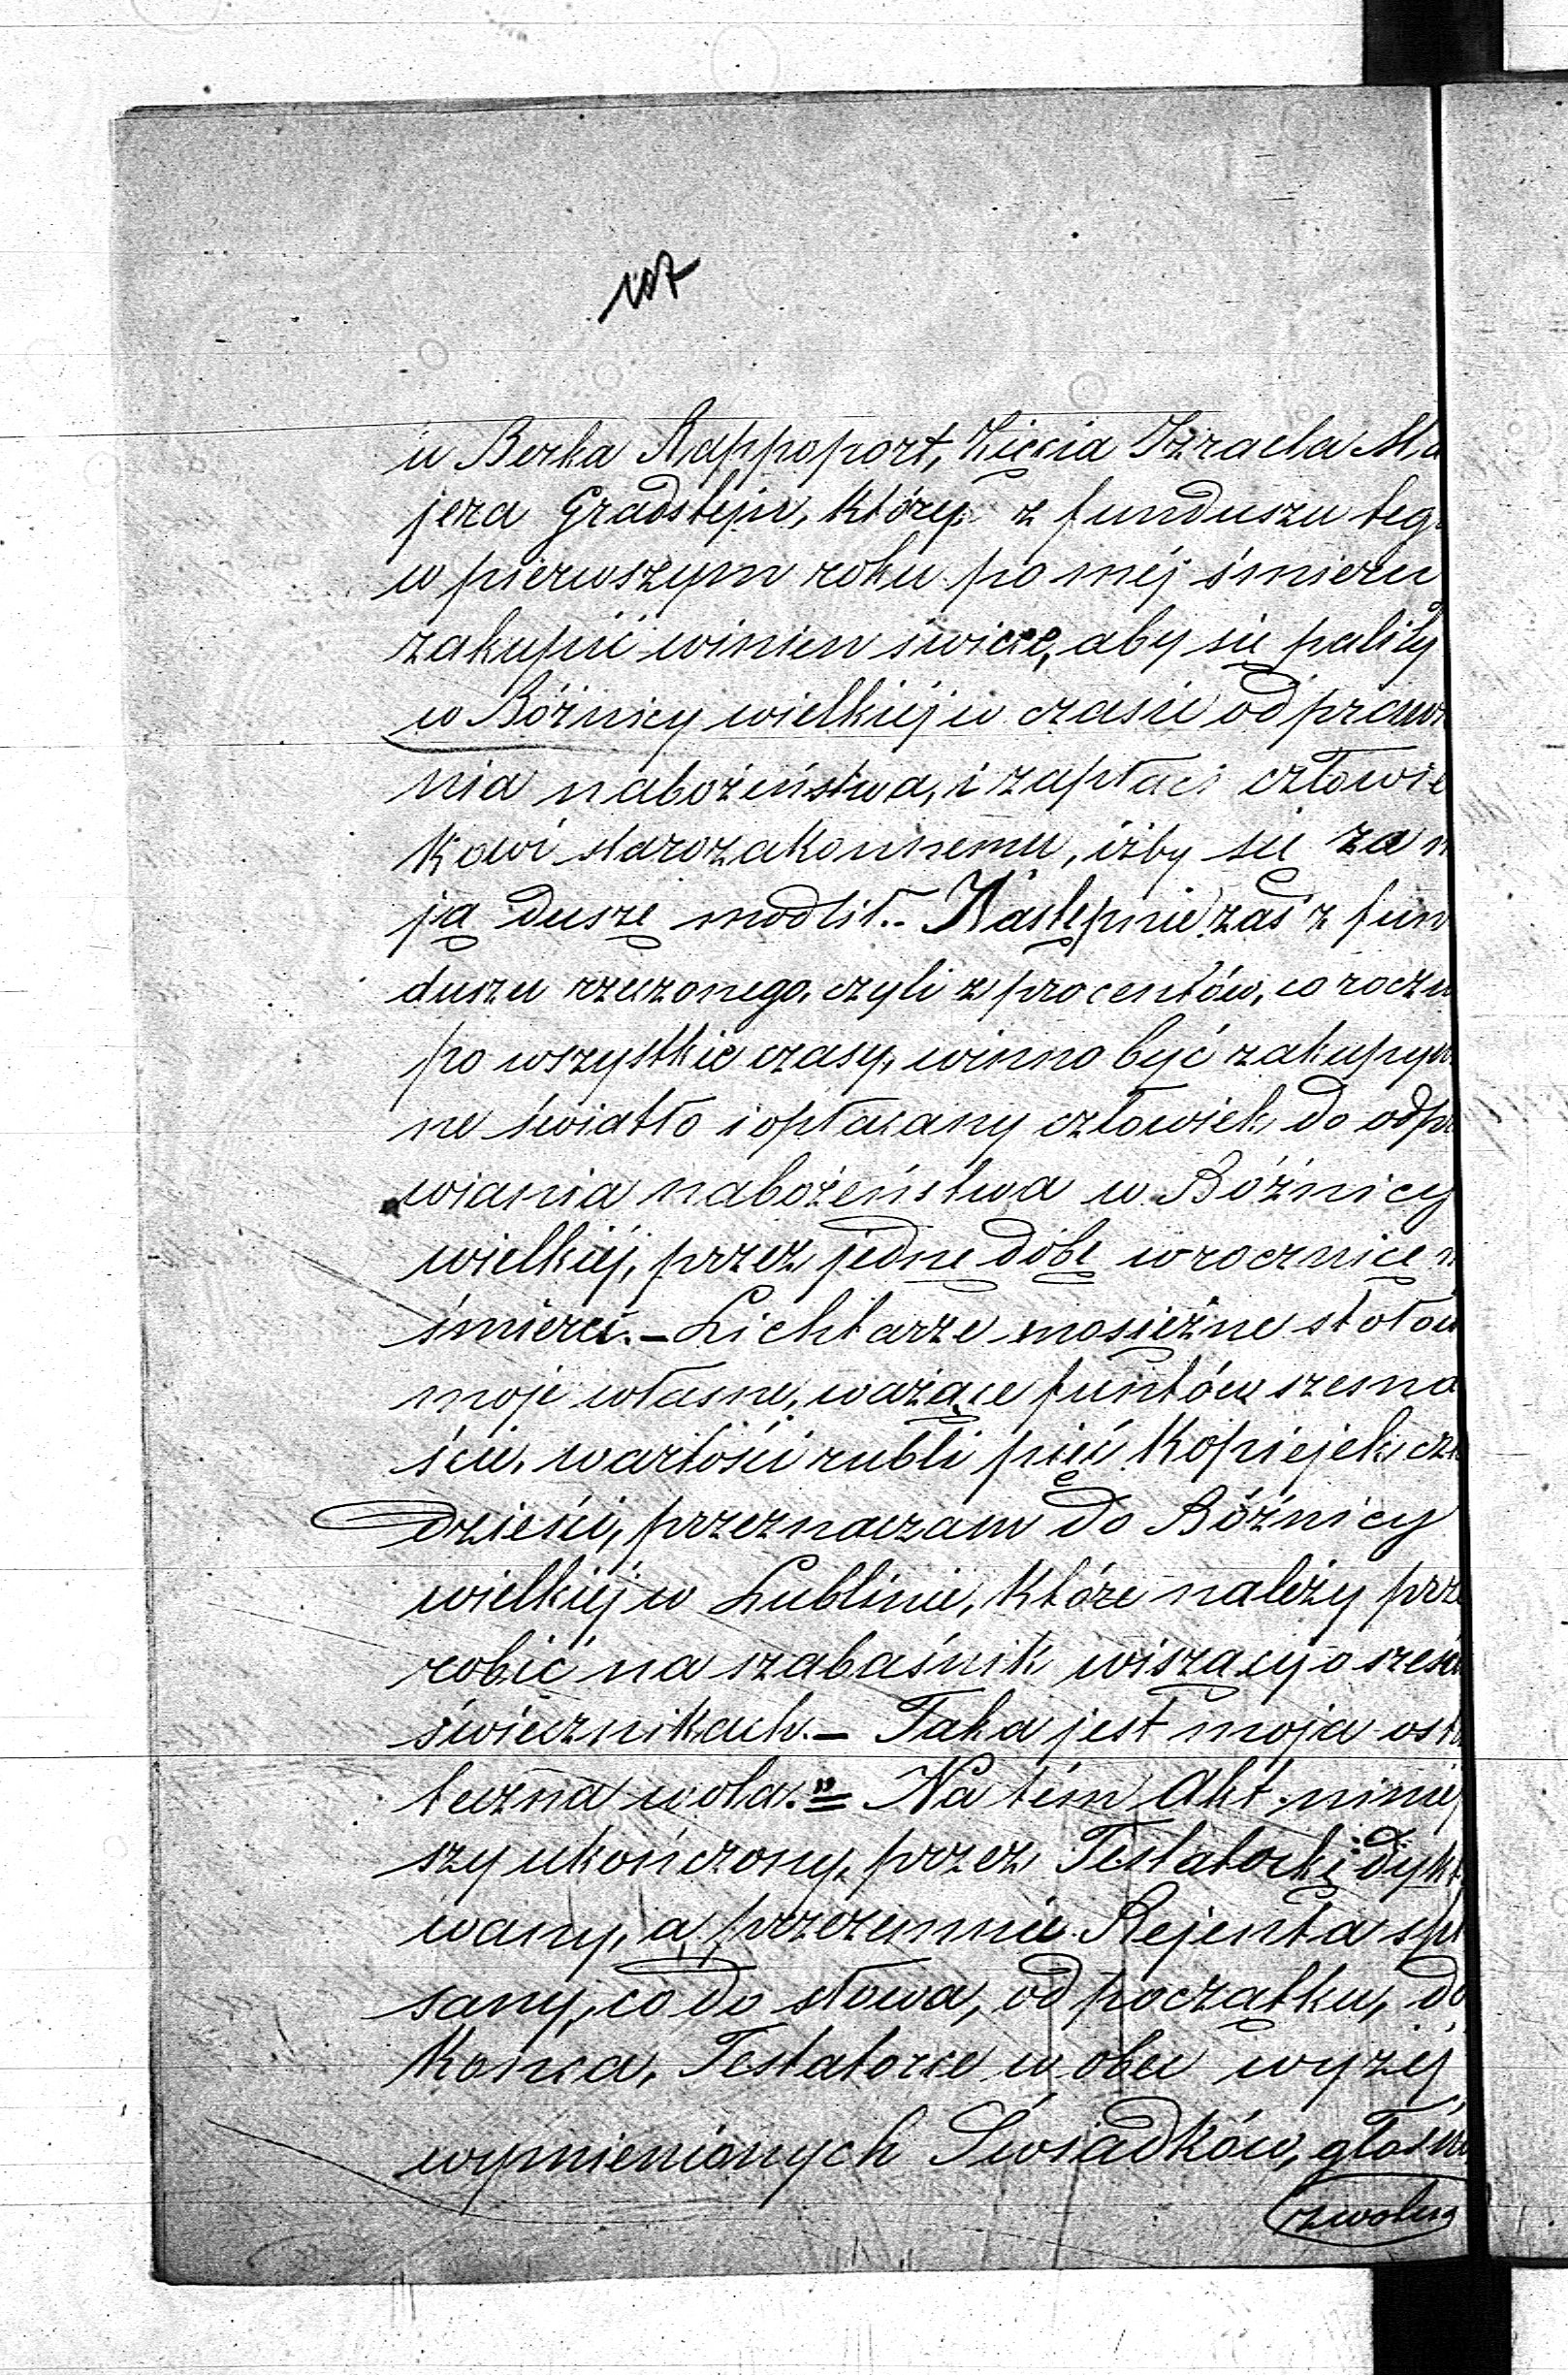 107
u Berka Rappoport, Zięcia Izraela Ma
jera Gradsztejn, który z funduszu teg
w pierwszym roku po méj śmierci
zakupić winien świece, aby się paliły
w Bóżnicy wielkiéj w czasie odprawia
nia nabożeństwa, i zapłaci człowie
kowi starozakonnemu, iżby się za m
ją duszę modlił.- Następnie zaś z fun
duszu rzeczonego, czyli z procentów, coroczn
po wszystkie czasy, winno być zakupyw
ne światło i opłacany człowiek, do odpr
wiania nabożeństwa w Bóżnicy
wielkiéj, przez jednę dobę w rocznicę m
śmierci.- Lichtarze mosiężne stołow
moje własne, ważące funtów szesna
ście, wartości rubli pięć kopiejek czt
dzieści, przeznaczam do Bóżnicy
wielkiéj w Lublinie, które należy prze
robić na szabaśnik wiszący o sześci
świecznikach.- Taka jest moja osta
teczna wola."= Na tém Akt niniej
szy ukończony, przez Testatorkę dykt
wany, a przezemnie Rejenta spi
sany, co do słowa, od początku, do
końca, Testatorce w obec wyżéj
wymienionych Świadków, głośno
zwolna